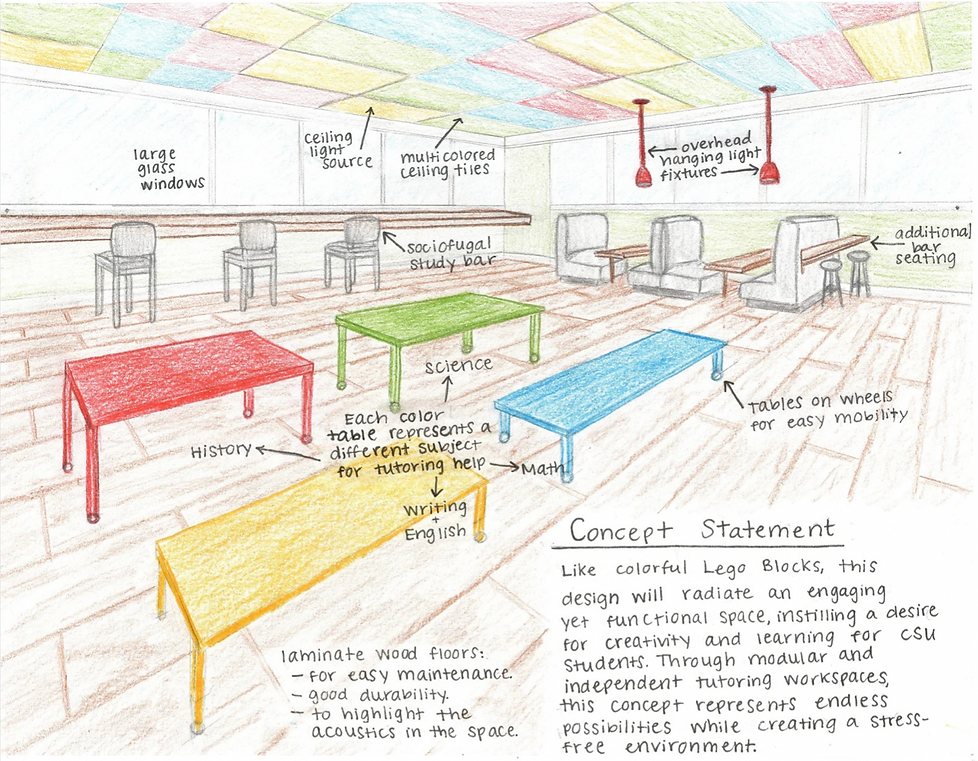 large
glass
windows
ceiling
light
source
multicolored
ceiling tiles
overhead
hanging light
fixtures
sociofugal
study bar
additional
bar
seating
science
Each color
table represents a
different subject
for tutoring help
History
Math
Writing
+
English
tables on wheels
for easy mobility
laminate wood floors:
- for easy maintenance.
- good durability.
- to highlight the
acoustics in the space.
Concept Statement
Like colorful Lego Blocks, this
design will radiate an engaging
yet functional space, instilling a desire
for creativity and learning for CSU
students. Through modular and
independent tutoring workspaces,
this concept represents endless
possibilities while creating a stress-
free environment.